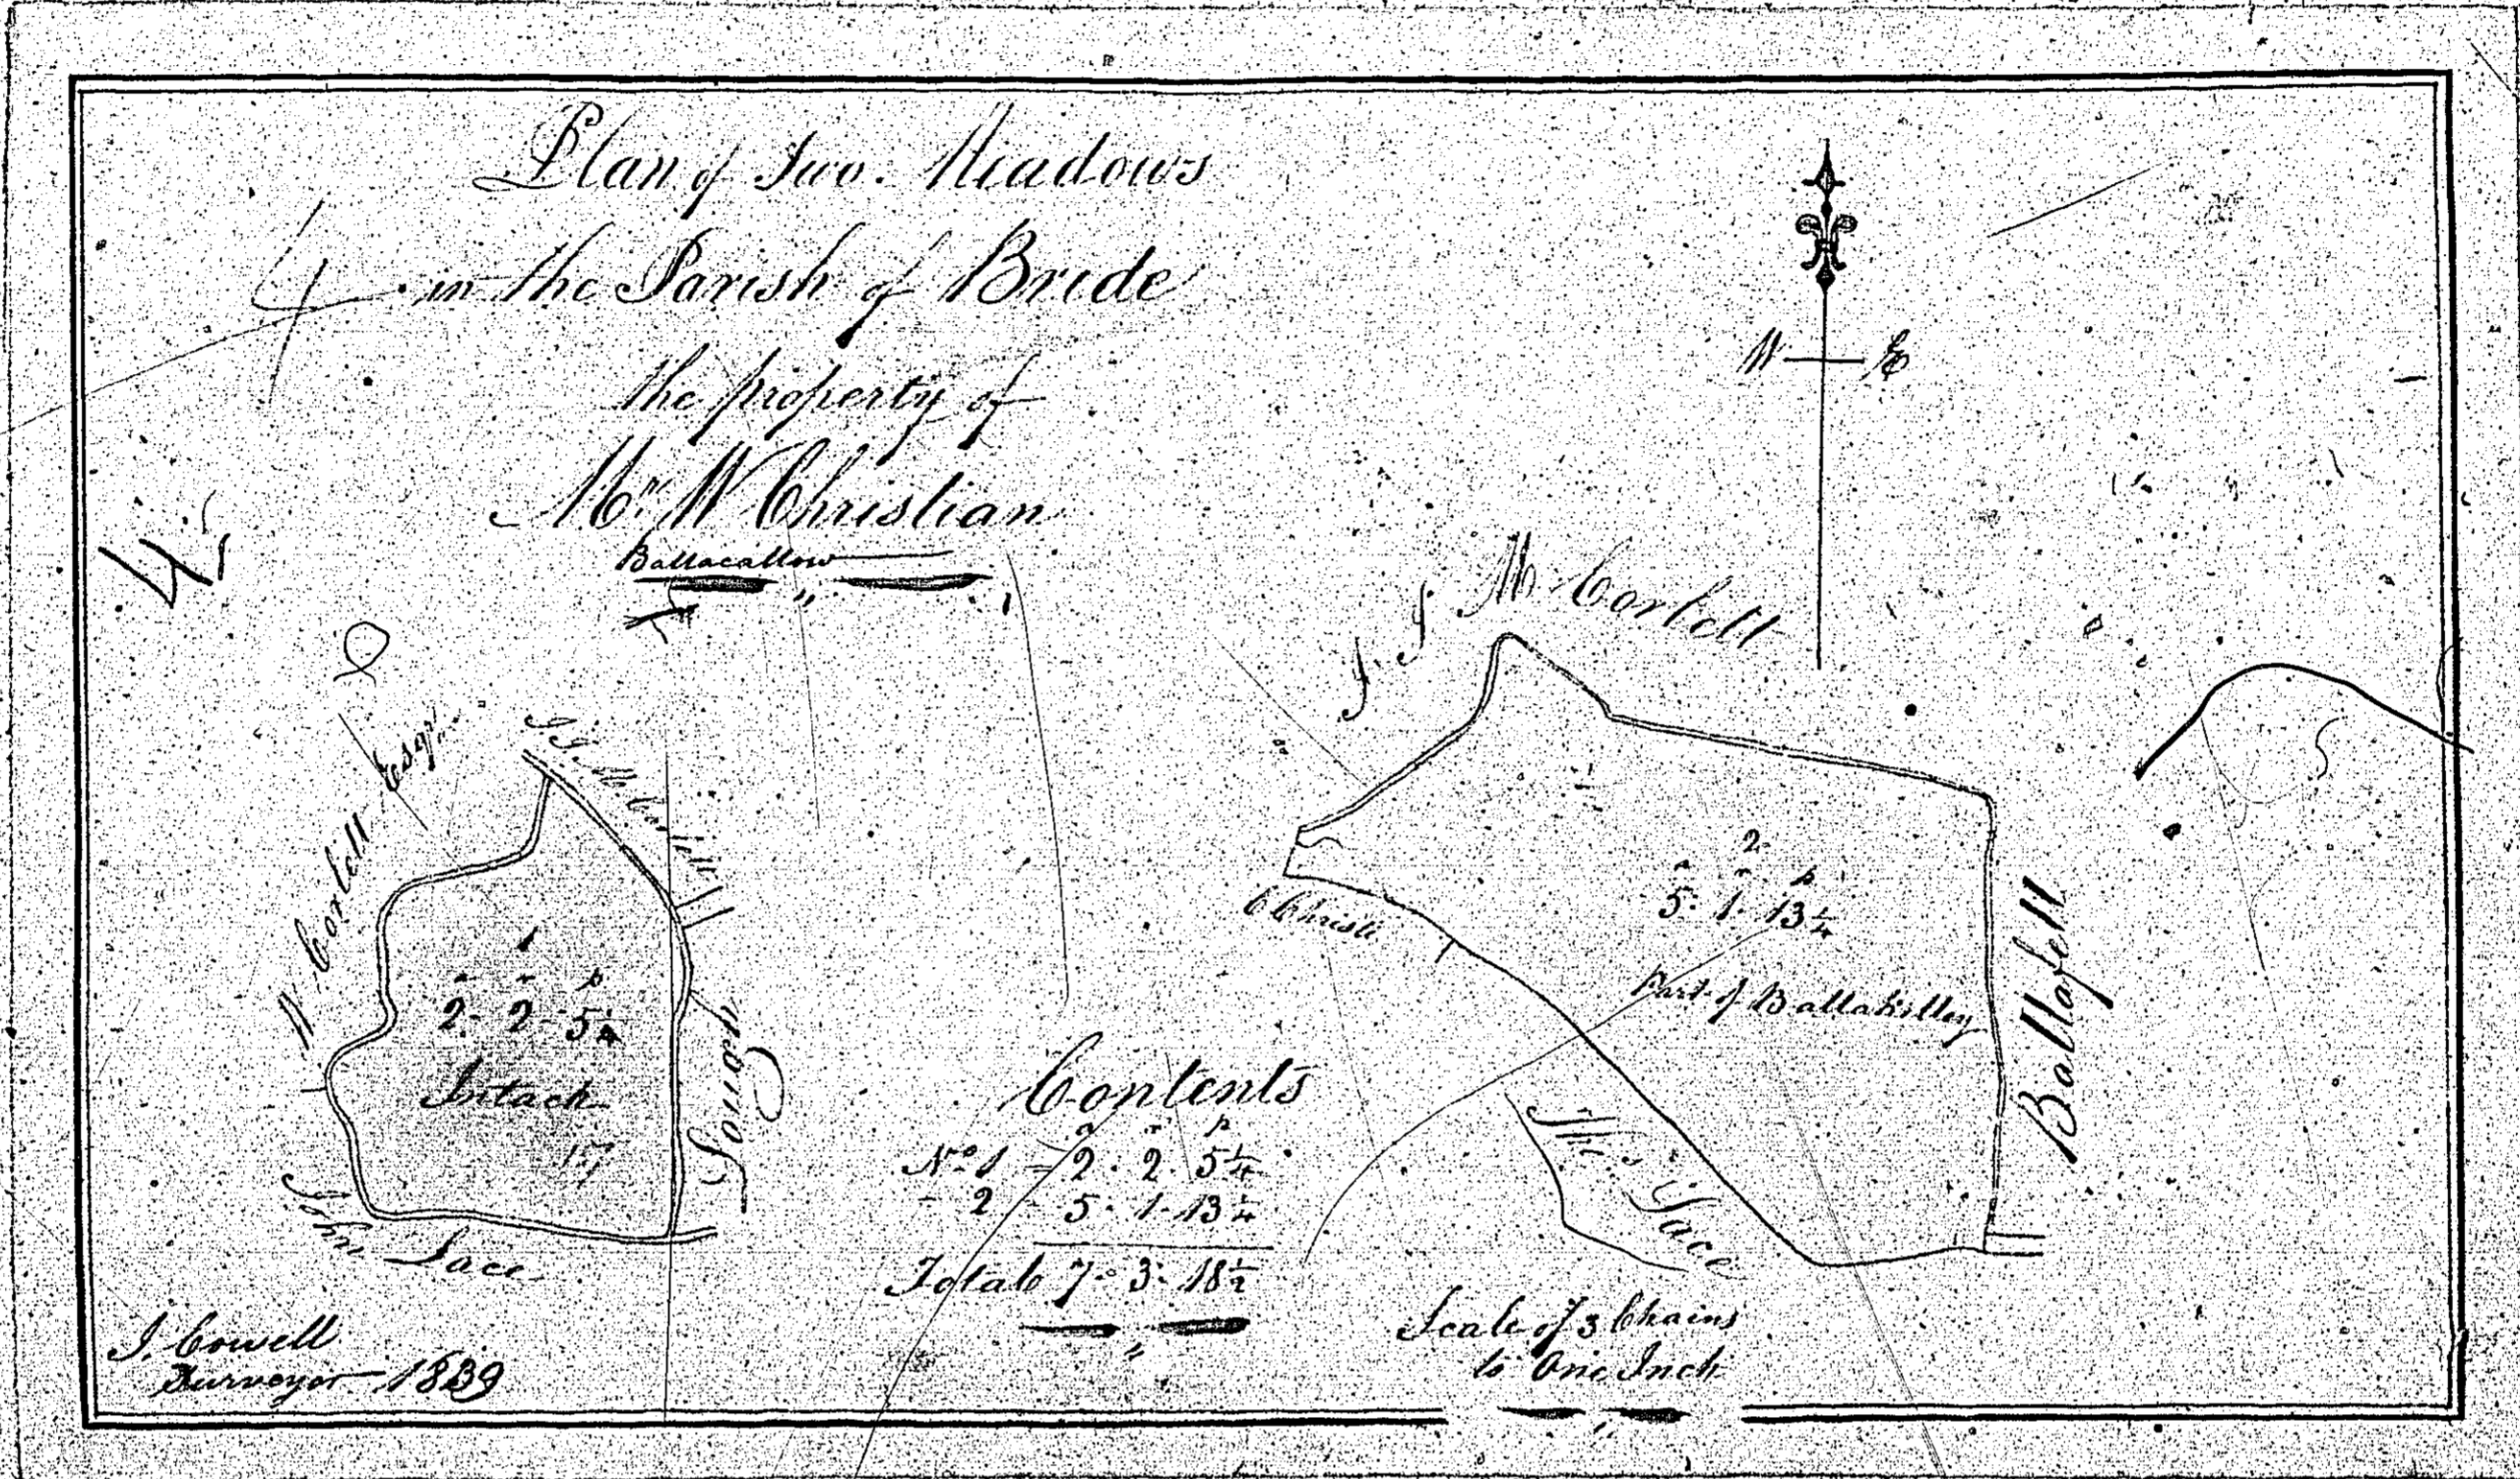 Plan of Two Meadows
in the Parish of Bride
the property of
Mr. W Christian
Ballacallow
4
W E
J. J. M Corlett
W Corlett Esqr.
J J M Corlett
1
a r p
2 - 2 - 5 1/4
Intack
17
Lough
John Lace
2
a r p
5 . 1 . 13 1/4
Part of Ballakilley
Ballafell
C Christn
Thos. Lace
Contents
a r p
No. 1 - 2 . 2 . 5 1/4
- 2 5 . 1 . 13 1/4
Total 7 . 3 . 18 1/2
Scale of 3 Chains
to One Inch
J. Cowell
Surveyor 1839